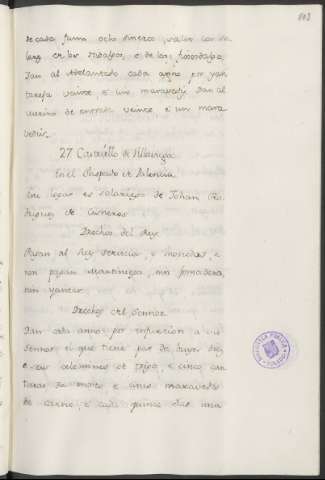 de cada fumo ocho dineros,
Dan al Adelantado cada anno por yan
tarefa veinte e un maravedi Dan al
merino de entrada veinte e un mara
vedis.
27 Castriello de Villavega
En el Obispado de Palencia
Este logar es solariego de Johan Ro
driguez de Cisneros
Derechos del Rey
Pagan al Rey servicios, e monedas, e
non pagan martiniega, nin fonsadera,
nin yantar
Derechos del Sennor
Dan cada anno por infurcion a su
Sennor el que tiene par de bueyes diez
e seis celemines de trigo, e cinco can
taras de mosto e cinco maravedis
de carne, e cada quince dias una